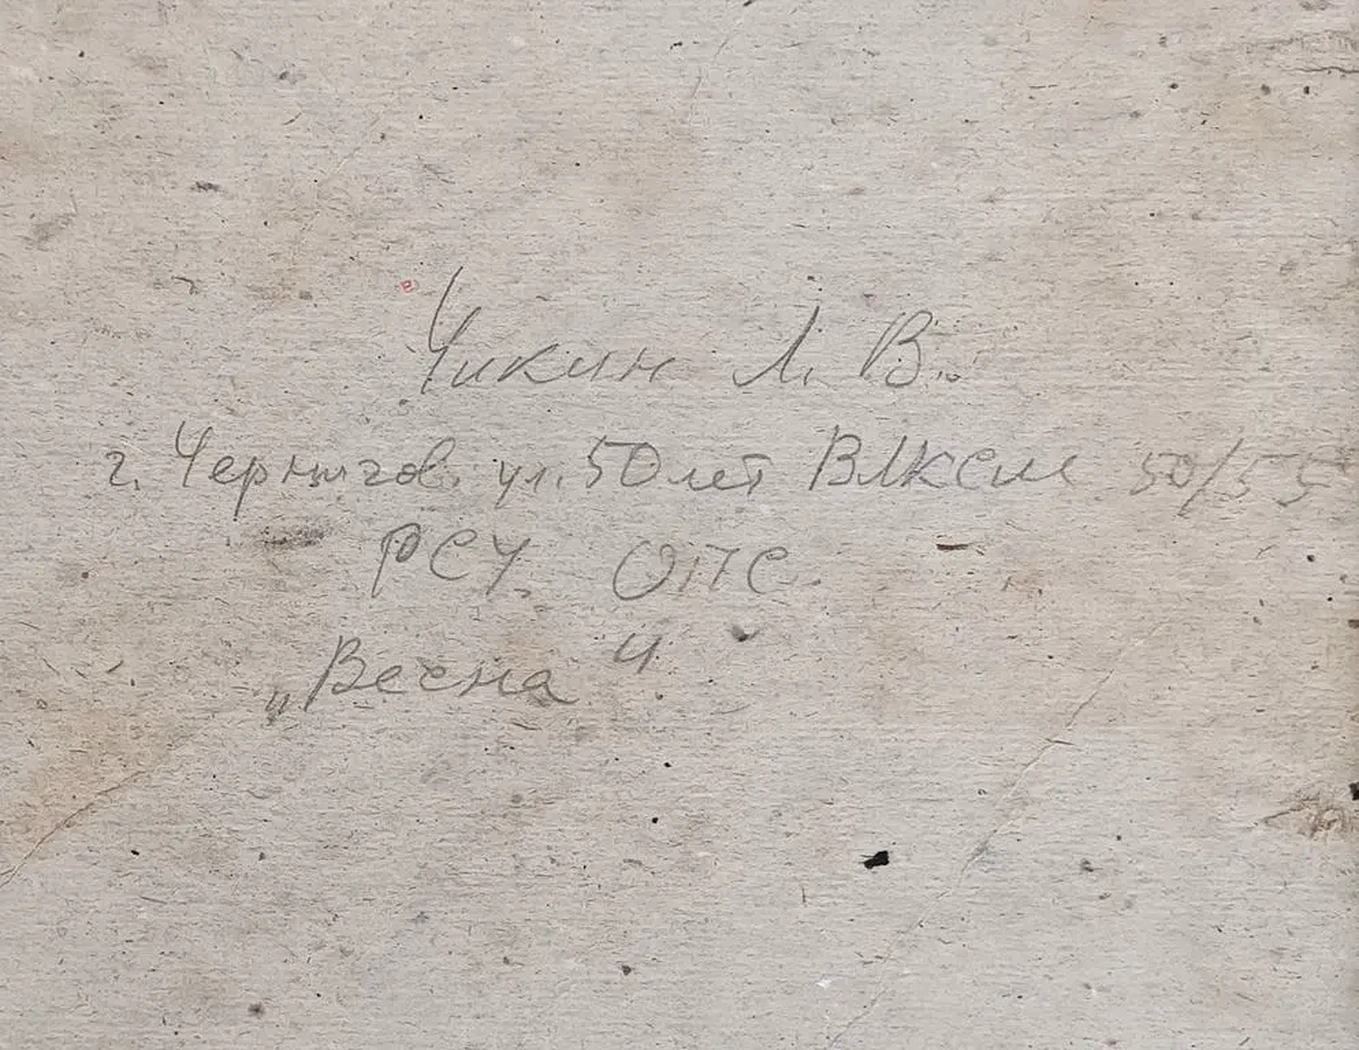 Чикин Л. В.
г. Чернигов. ул. 50 лет ВЛКСМ 50/55
РСУ. ОПС.
„Весна“